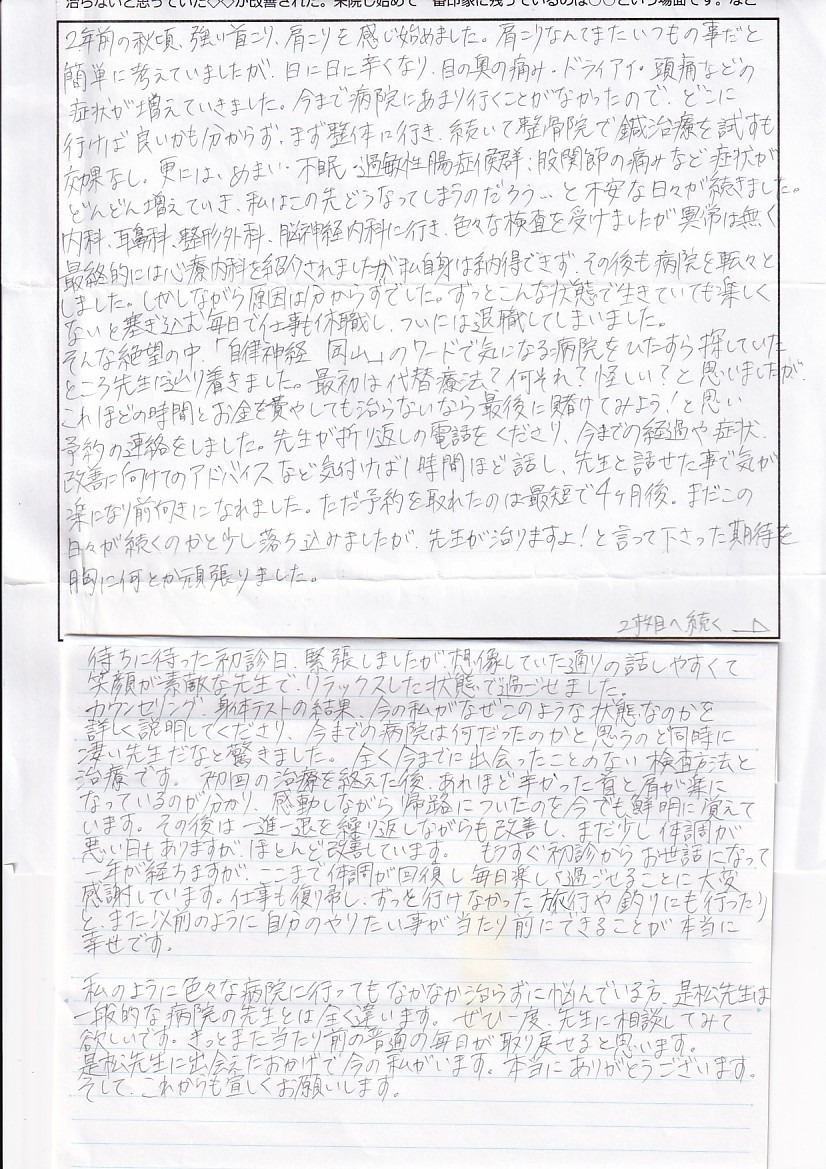 治らないと思っていた◇◇が改善された。来院し始めて一番印象に残っているのは○○という場面です。など
2年前の秋頃、強い首こり、肩こりを感じ始めました。肩こりなんてまたいつもの事だと
簡単に考えていましたが、日に日に辛くなり、目の奥の痛み・ドライアイ・頭痛などの
症状が増えていきました。今まで病院にあまり行くことがなかったので、どこに
行けば良いかも分からず、まず整体に行き、続いて整骨院で鍼治療を試すも
効果なし。更には、めまい・不眠・過敏性腸症候群・股関節の痛みなど症状が
どんどん増えていき、私はこの先どうなってしまうのだろう…と不安な日々が続きました。
内科、耳鼻科、整形外科、脳神経内科に行き、色々な検査を受けましたが異常は無く
最終的には心療内科を紹介されましたが私自身は納得できず、その後も病院を転々と
しました。しかしながら原因は分からずでした。ずっとこんな状態で生きていても楽しく
ないと塞ぎ込む毎日で仕事も休職し、ついには退職してしまいました。
そんな絶望の中、「自律神経 岡山」のワードで気になる病院をひたすら探していた
ところ先生に辿り着きました。最初は代替療法?何それ?怪しい?と思いましたが、
これほどの時間とお金を費やしても治らないなら最後に賭けてみよう!と思い
予約の連絡をしました。先生が折り返しの電話をくださり、今までの経過や症状、
改善に向けてのアドバイスなど気付けば1時間ほど話し、先生と話せた事で気が
楽になり前向きになれました。ただ予約を取れたのは最短で4ヶ月後。まだこの
日々が続くのかと少し落ち込みましたが、先生が治りますよ!と言って下さった期待を
胸に何とか頑張りました。
2枚目へ続く
待ちに待った初診日、緊張しましたが、想像していた通りの話しやすくて
笑顔が素敵な先生で、リラックスした状態で過ごせました。
カウンセリング、身体テストの結果、今の私がなぜこのような状態なのかを
詳しく説明してくださり、今までの病院は何だったのかと思うのと同時に
凄い先生だなと驚きました。全く今までに出会ったことのない検査方法と
治療です。初回の治療を終えた後、あれほど辛かった首と肩が楽に
なっているのが分かり、感動しながら帰路についたのを今でも鮮明に覚えて
います。その後は一進一退を繰り返しながらも改善し、まだ少し体調が
悪い日もありますが、ほとんど改善しています。もうすぐ初診からお世話になって
一年が経ちますが、ここまで体調が回復し毎日楽しく過ごせることに大変
感謝しています。仕事も復帰し、ずっと行けなかった旅行や釣りにも行ったり
と、また以前のように自分のやりたい事が当たり前にできることが本当に
幸せです。
私のように色々な病院に行ってもなかなか治らずに悩んでいる方、是松先生は
一般的な病院の先生とは全く違います。ぜひ一度、先生に相談してみて
欲しいです。きっとまた当たり前の普通の毎日が取り戻せると思います。
是松先生に出会えたおかげで今の私がいます。本当にありがとうございます。
そして、これからも宜しくお願いします。